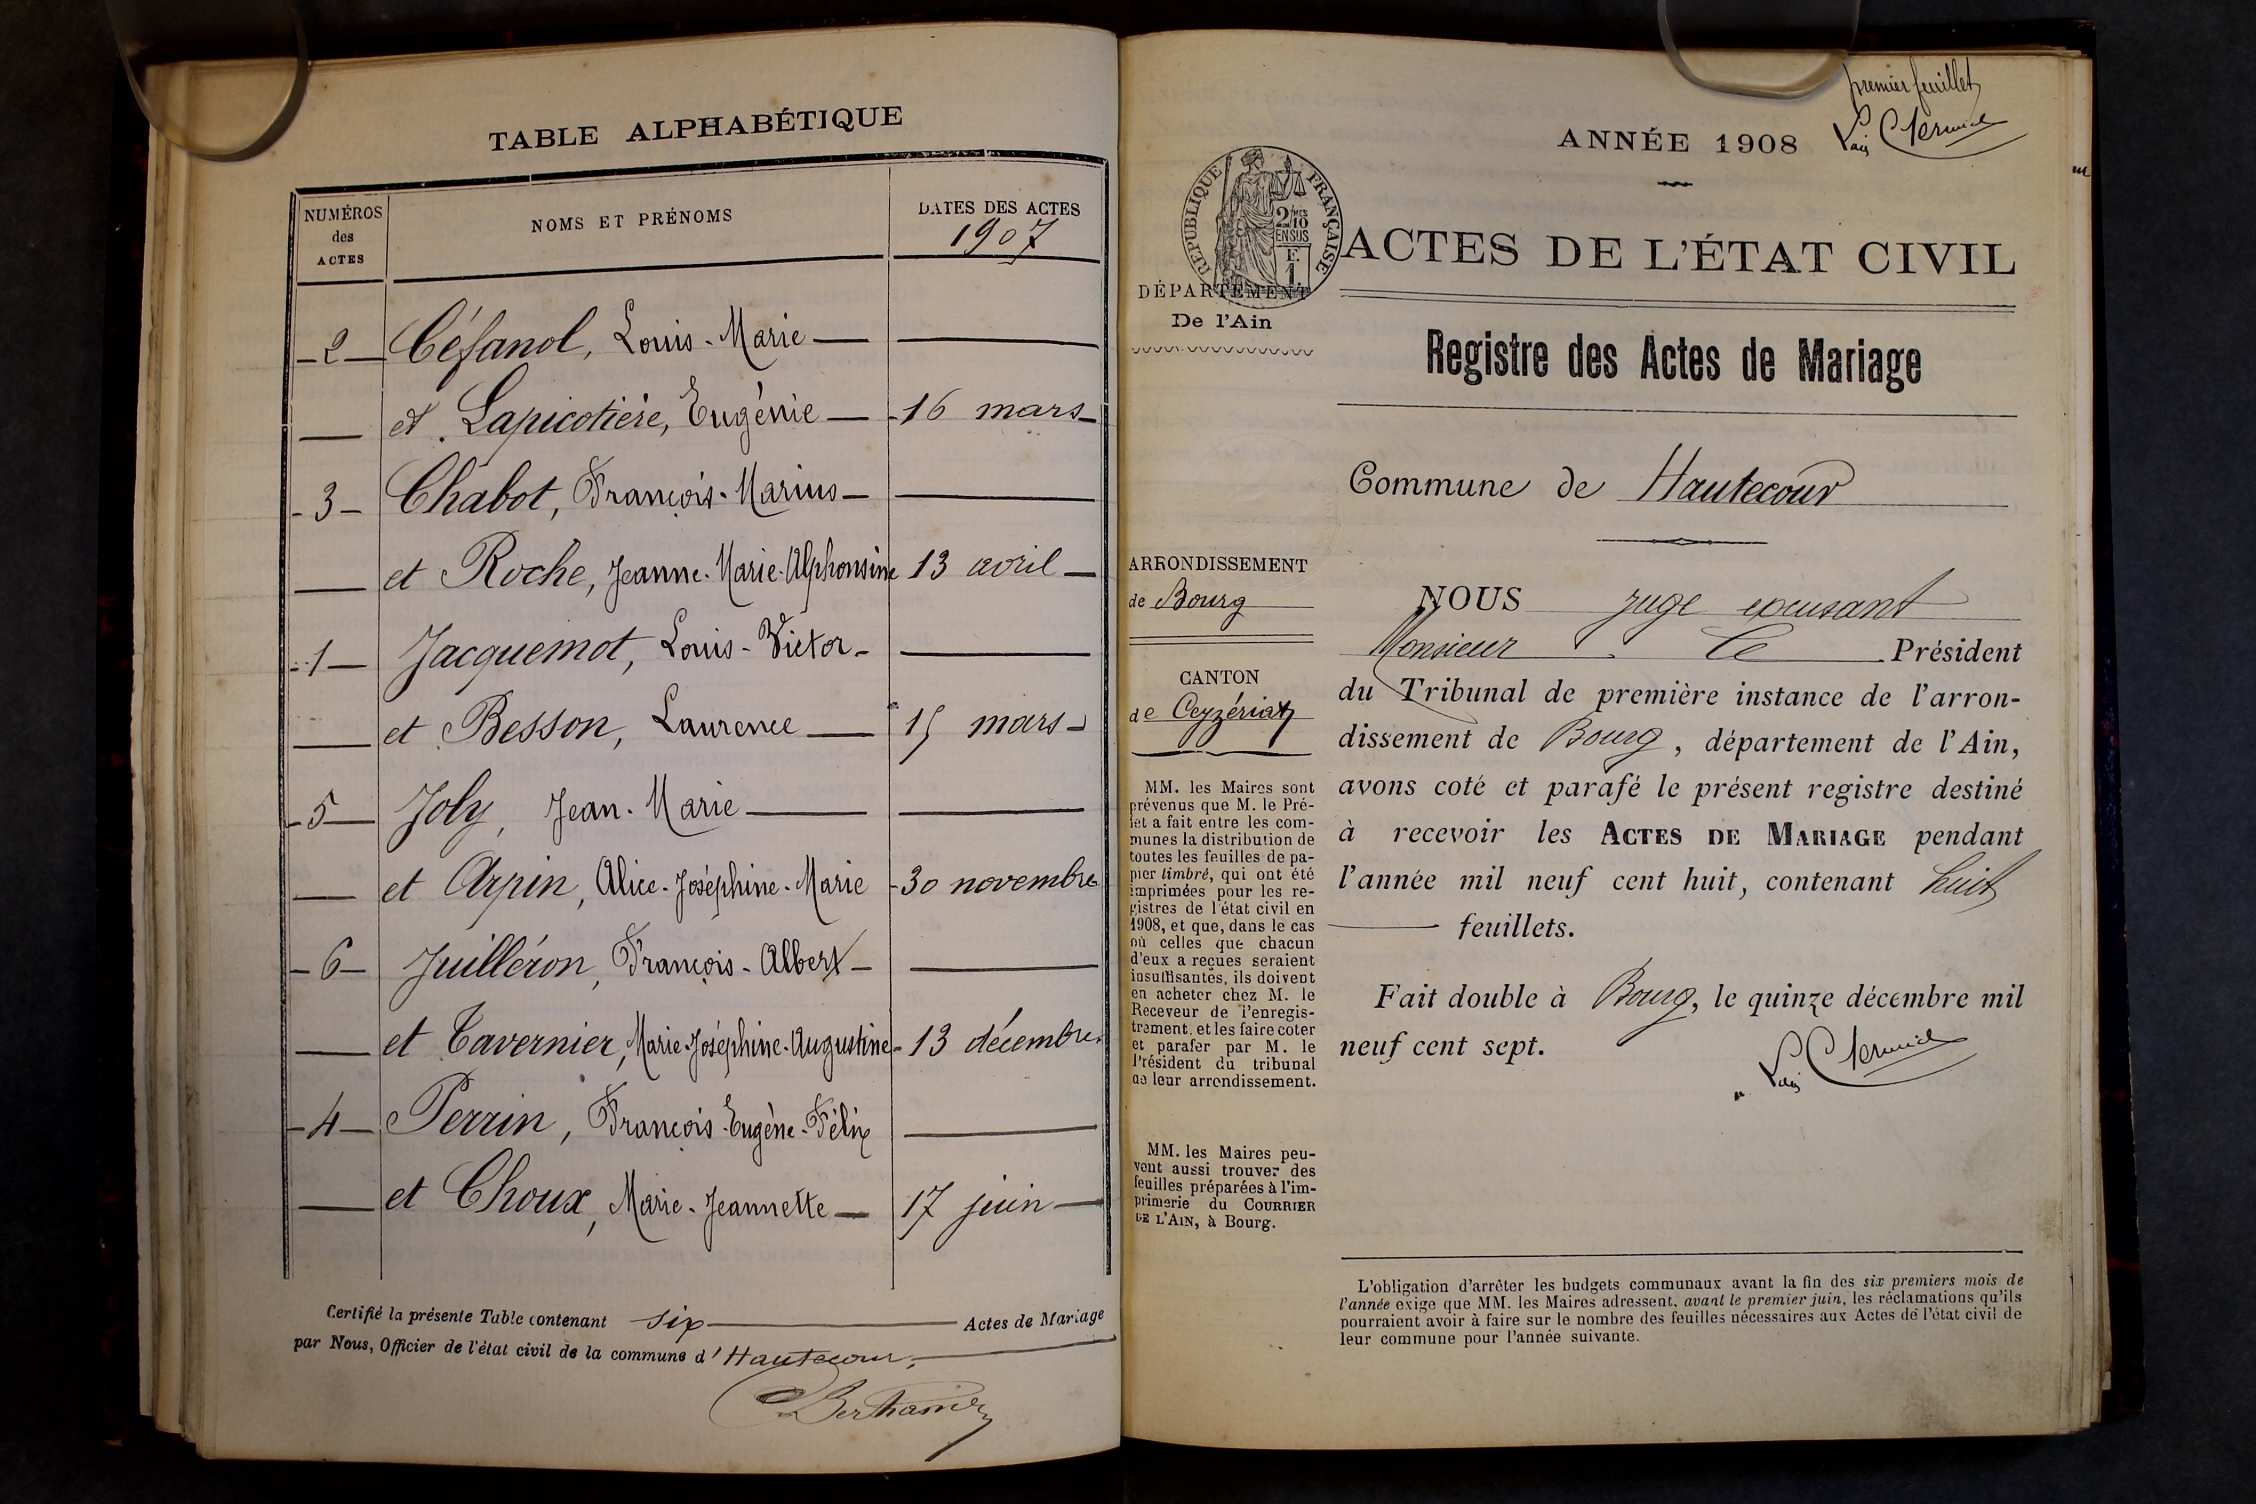 TABLE ALPHABÉTIQUE
NUMÉROS des ACTES
NOMS ET PRÉNOMS
DATES DES ACTES
1907
2 Céfanol, Louis-Marie
et Lapicotière, Eugénie 16 mars
3 Chabot, François-Marius
et Roche, Jeanne-Marie-Alphonsine 13 avril
1 Jacquemot, Louis-Victor
et Besson, Laurence 15 mars
5 Joly, Jean-Marie
et Arpin, Alice-Joséphine-Marie 30 novembre
6 Juilléron, François-Albert
et Tavernier, Marie-Joséphine-Augustine 13 décembre
4 Perrin, François-Eugène-Félix
et Choux, Marie-Jeannette 17 juin
Certifié la présente Table contenant six Actes de Mariage
par Nous, Officier de l'état civil de la commune d'Hautecour,
premier feuillet
ANNÉE 1908
RÉPUBLIQUE FRANÇAISE
2/10 MES
EN SUS
F.
1
ACTES DE L'ÉTAT CIVIL
DÉPARTEMENT
De l'Ain
Registre des Actes de Mariage
Commune de Hautecour
ARRONDISSEMENT
de Bourg
CANTON
de Ceyzériat
MM. les Maires sont
prévenus que M. le Pré-
fet a fait entre les com-
munes la distribution de
toutes les feuilles de pa-
pier timbré, qui ont été
imprimées pour les re-
gistres de l'état civil en
1908, et que, dans le cas
où celles que chacun
d'eux a reçues seraient
insuffisantes, ils doivent
en acheter chez M. le
Receveur de l'enregis-
trement, et les faire coter
et parafer par M. le
Président du tribunal
de leur arrondissement.
MM. les Maires peu-
vent aussi trouver des
feuilles préparées à l'im-
primerie du COURRIER
DE L'AIN, à Bourg.
NOUS juge excusant
Monsieur le Président
du Tribunal de première instance de l'arron-
dissement de Bourg, département de l'Ain,
avons coté et parafé le présent registre destiné
à recevoir les ACTES DE MARIAGE pendant
l'année mil neuf cent huit, contenant huit
feuillets.
Fait double à Bourg, le quinze décembre mil
neuf cent sept.
L'obligation d'arrêter les budgets communaux avant la fin des six premiers mois de
l'année exige que MM. les Maires adressent, avant le premier juin, les réclamations qu'ils
pourraient avoir à faire sur le nombre des feuilles nécessaires aux Actes de l'état civil de
leur commune pour l'année suivante.